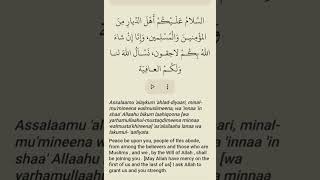 السَّلَامُ عَلَـيْكُمْ أَهْلَ الدِّيَارِ مِنَ
المُؤْمِنِيْنَ وَالْمُسْلِمِيْنَ، وَإِنَّا إِنْ شَاءَ
اللهُ بِكُمْ لَاحِقُونَ، نَسْأَلُ اللهَ لَنَا
وَلَكُمُ العَافِيَةَ
Assalaamu 'alaykum 'ahlad-diyari, minal-
mu'mineena walmuslimeena, wa 'innaa 'in
shaa' Allaahu bikum laahiqoona [wa
yarhamullaahul-mustaqdimeena minnaa
walmusta'khireena] 'as'alullaaha lanaa wa
lakumul- 'aafiyata.
Peace be upon you, people of this abode,
from among the believers and those who are
Muslims , and we , by the Will of Allah , shall
be joining you . [May Allah have mercy on the
first of us and the last of us] I ask Allah to
grant us and you strength.